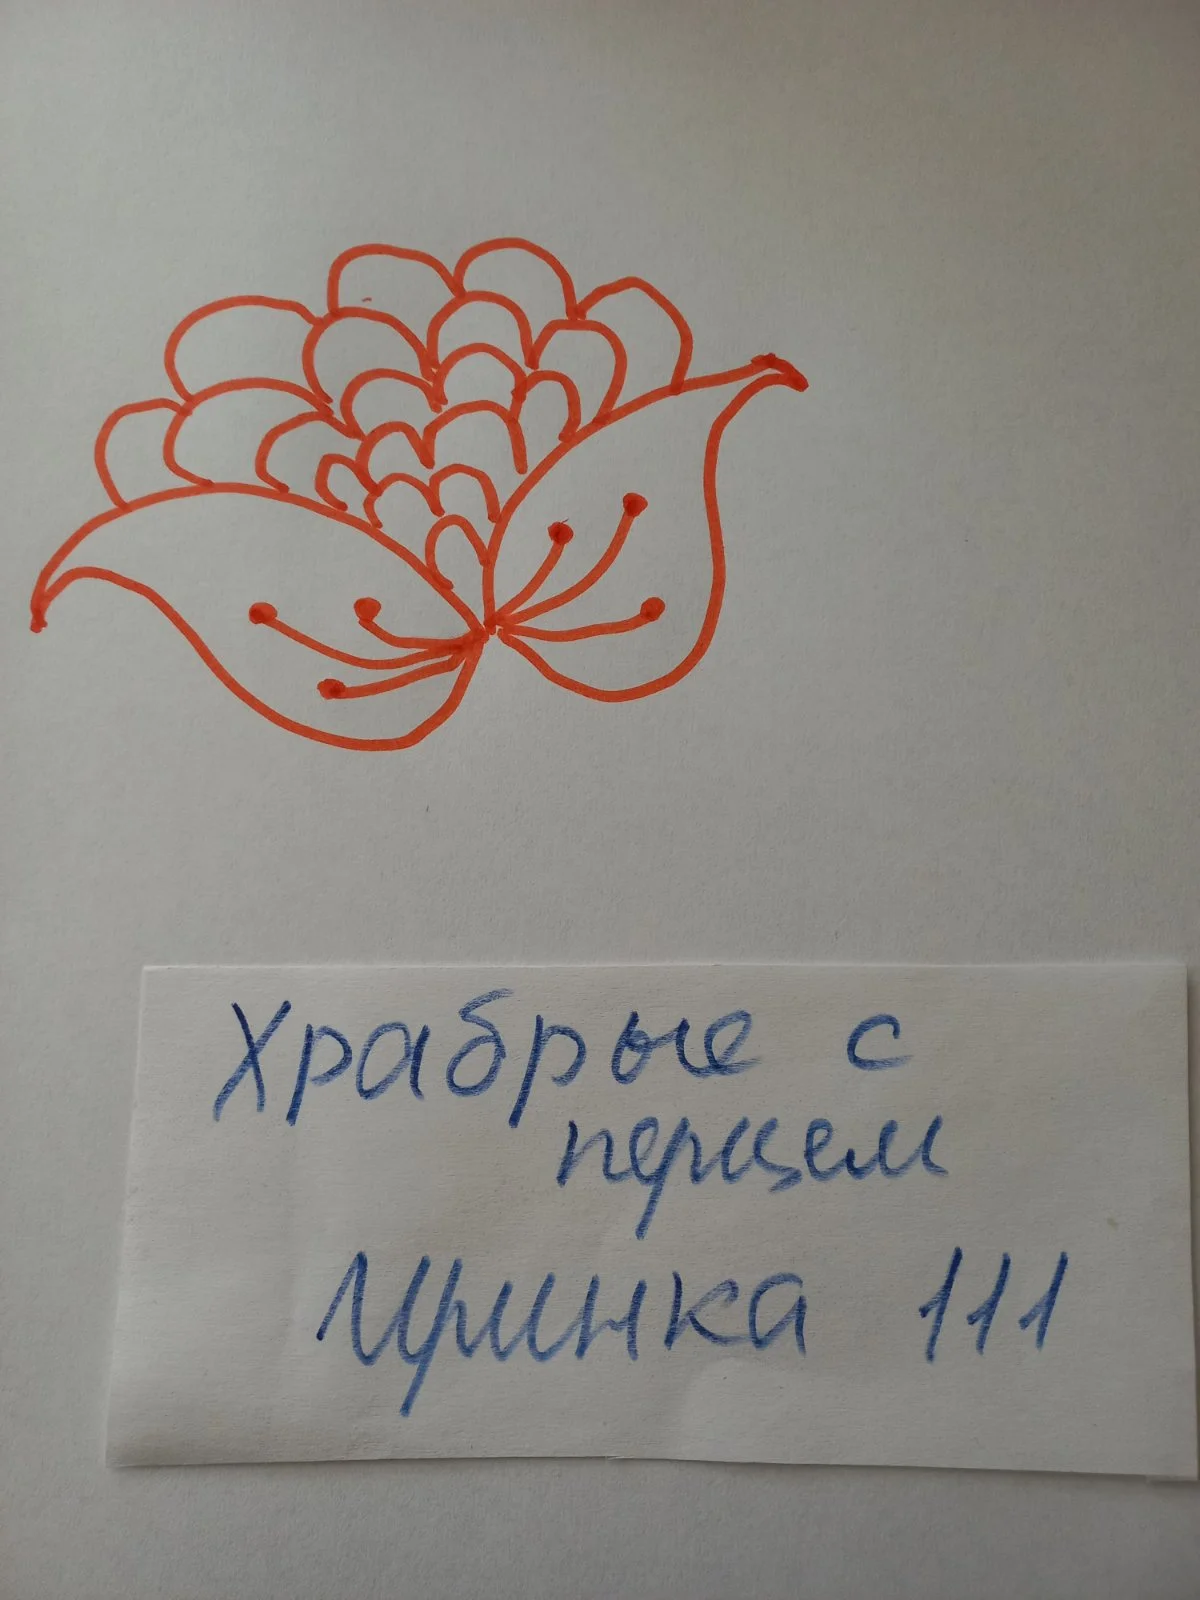 Храбрые с
перцем
Иринка 111